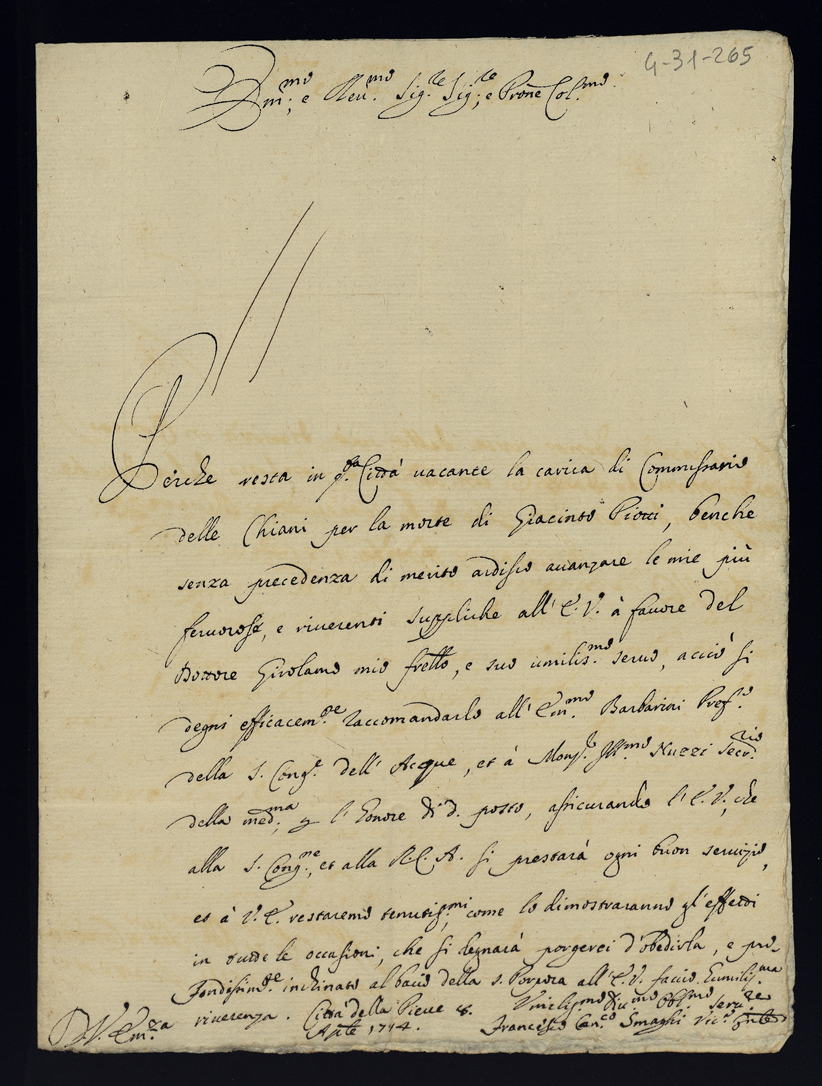 4-31-265
Em.mo e Reu.mo Sig.re Sig.re e Prone Col.mo
Perche resta in q.sta Città uacante la carica di Commissario
delle Chiani per la morte di Giacinto Piocci, benche
senza precedenza di merito ardisco auanzare le mie più
feruorose, e riuerenti suppliche all'E.V. à fauore del
Dottore Girolamo mio frello, e suo umiliss.mo seruo, acciò si
degni efficacem.te raccomandarlo all'Em.mo Barbarini Pref.o
della S. Cong.e dell'Acque, et à Mons.r Ill.mo Nuzzi Secr.rio
della med.ma, p l'honore di d. posto, assicurando l'E.V., che
alla S. Cong.ne, et alla R.C.A. si prestarà ogni buon seruizio,
et à V.E. restaremo tenutiss.mi, come lo dimostraranno gl'effetti
in tutte le occasioni, che si degnarà porgerci d'obedirla, e pro-
fondissim.te inchinato al bacio della S. Porpora all'E.V. faccio humiliss.ma
riuerenza. Città della Pieue 8.
Aple 1714.
D.V. Em.za
Vmiliss.mo Diu.mo Obl.mo Seru.re
Francesco Can.co Smaghi Vic.o